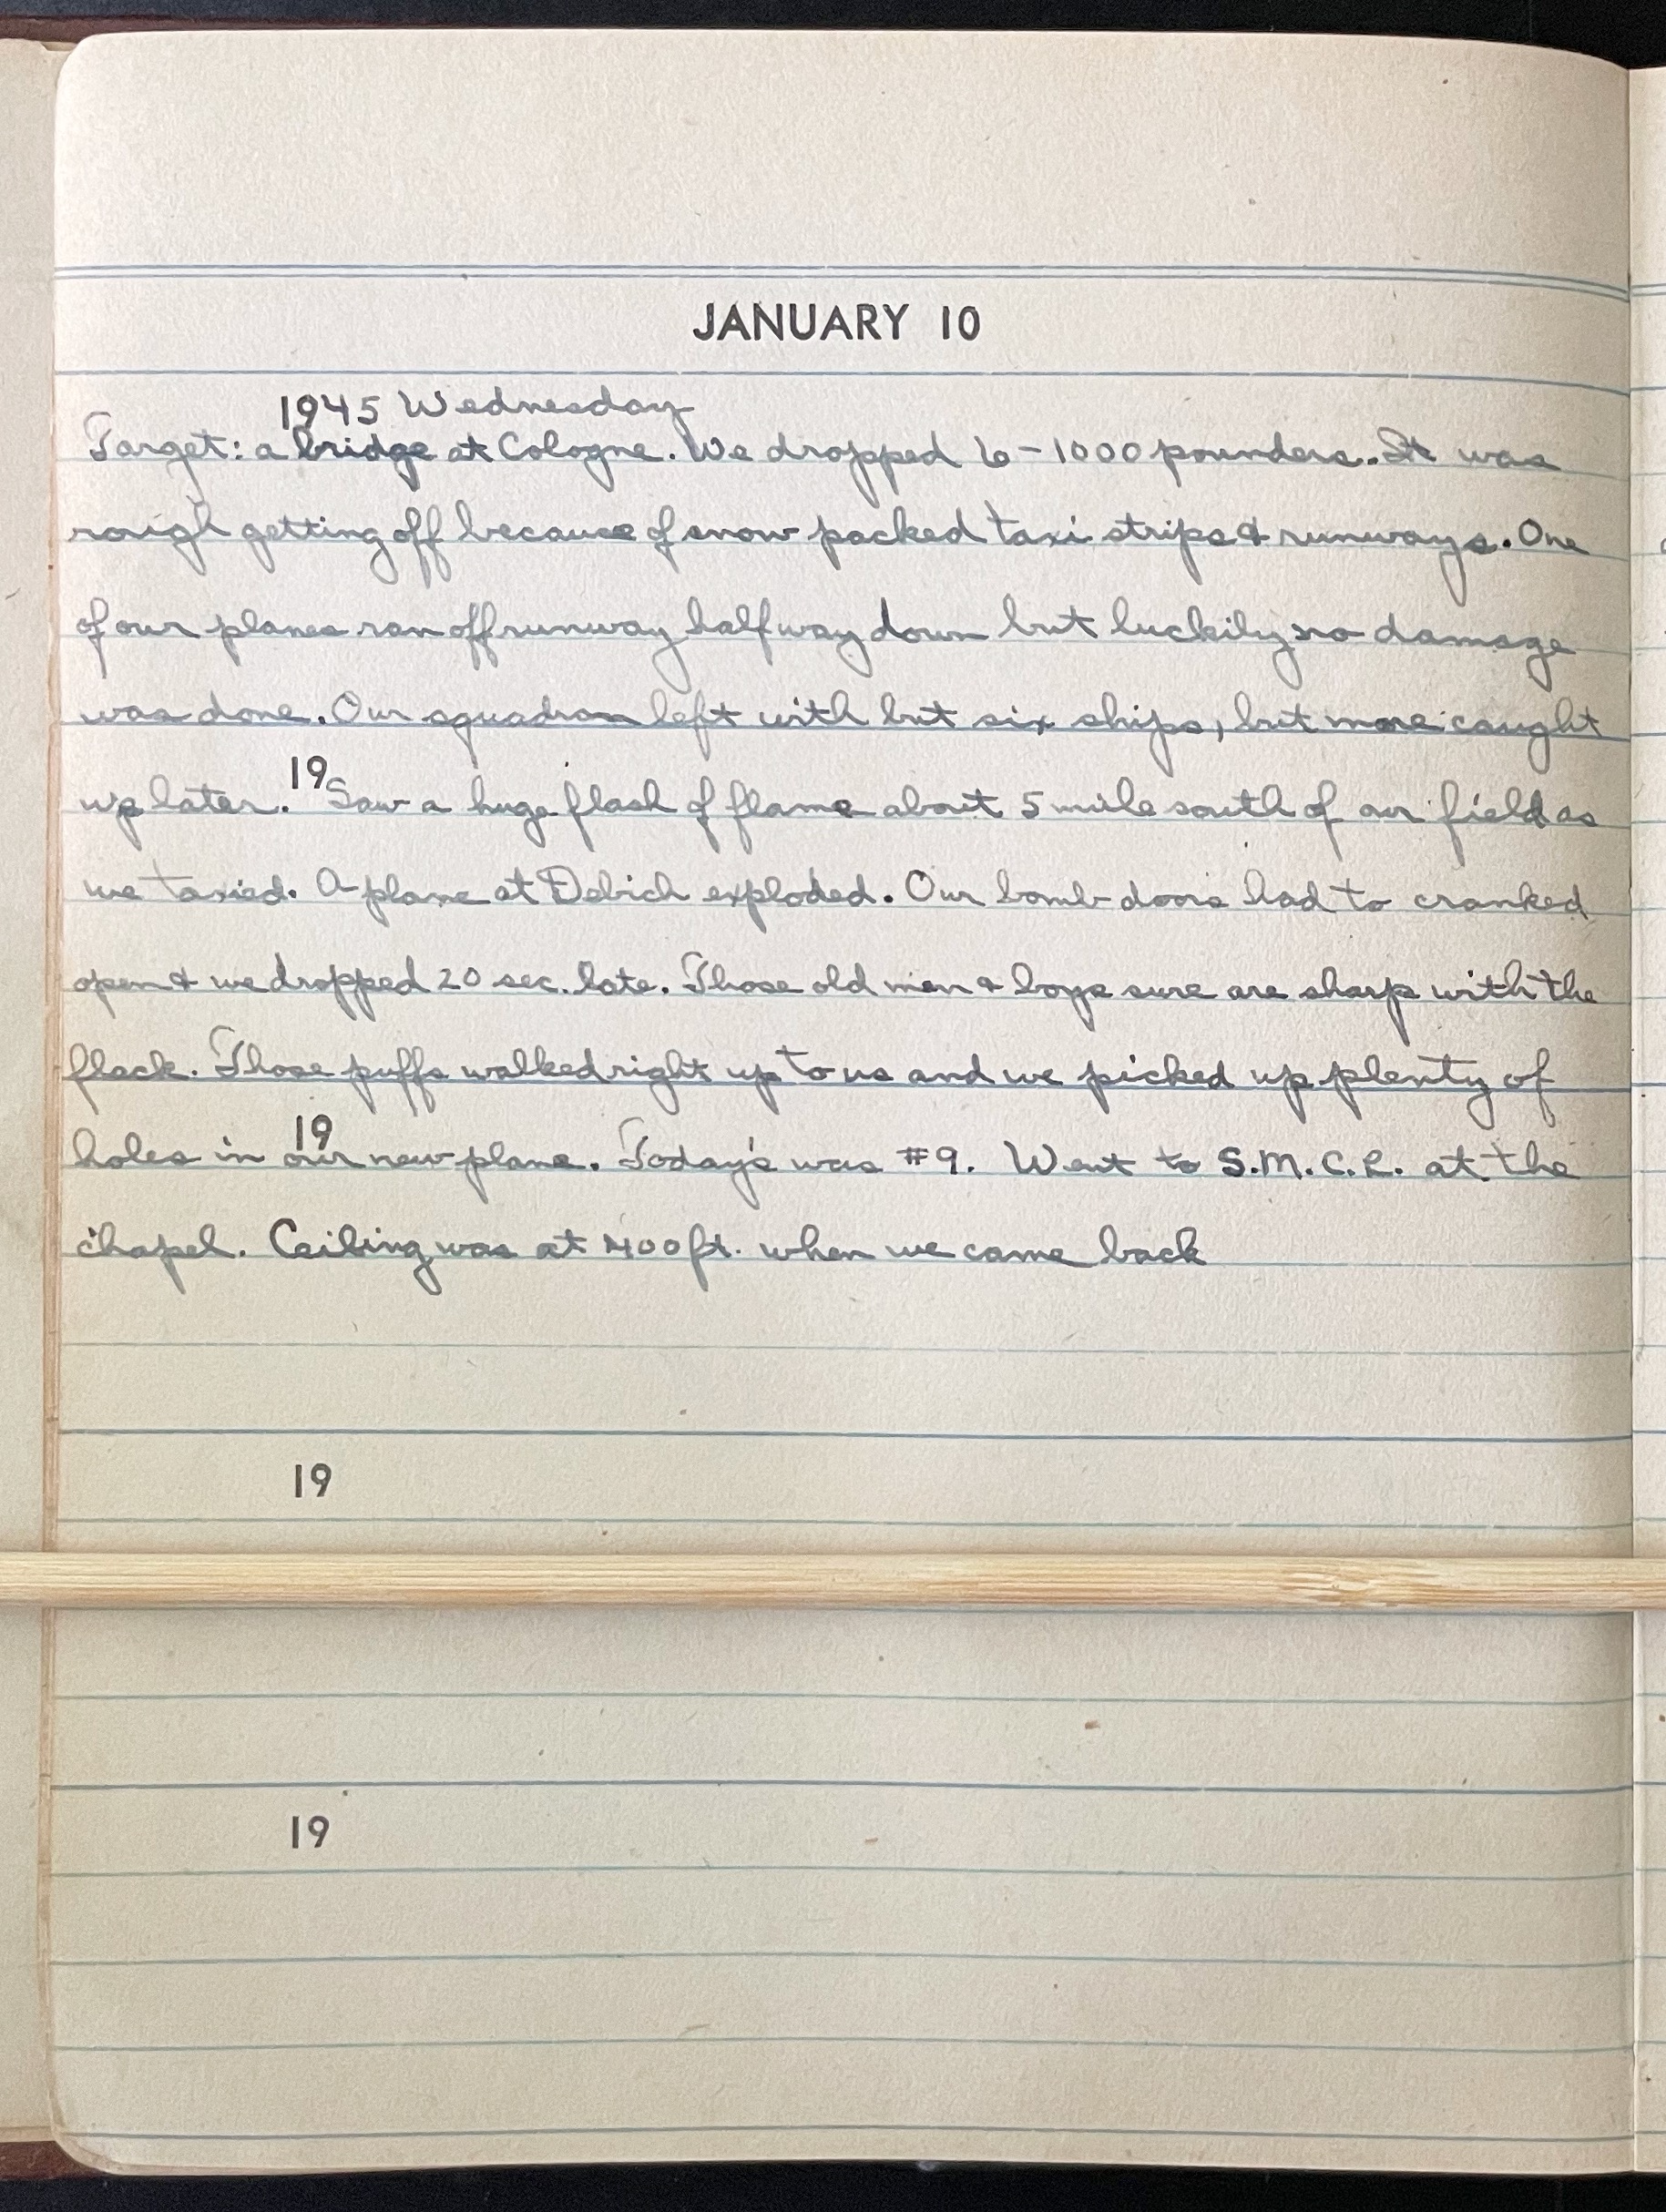 JANUARY 10
1945 Wednesday
Target: a bridge at Cologne. We dropped 6-1000 pounders. It was
rough getting off because of snow packed taxi strips & runways. One
of our planes ran off runway halfway down but luckily no damage
was done. Our squadron left with but six ships, but more caught
up later. 19 Saw a huge flash of flame about 5 mile south of our field as
we taxied. A plane at Debich exploded. Our bomb doors had to cranked
open & we dropped 20 sec. late. Those old men & boys sure are sharp with the
flack. Those puffs walked right up to us and we picked up plenty of
19
holes in our new plane. Today's was #9. Went to S.M.C.R. at the
chapel. Ceiling was at 400 ft. when we came back
19
19